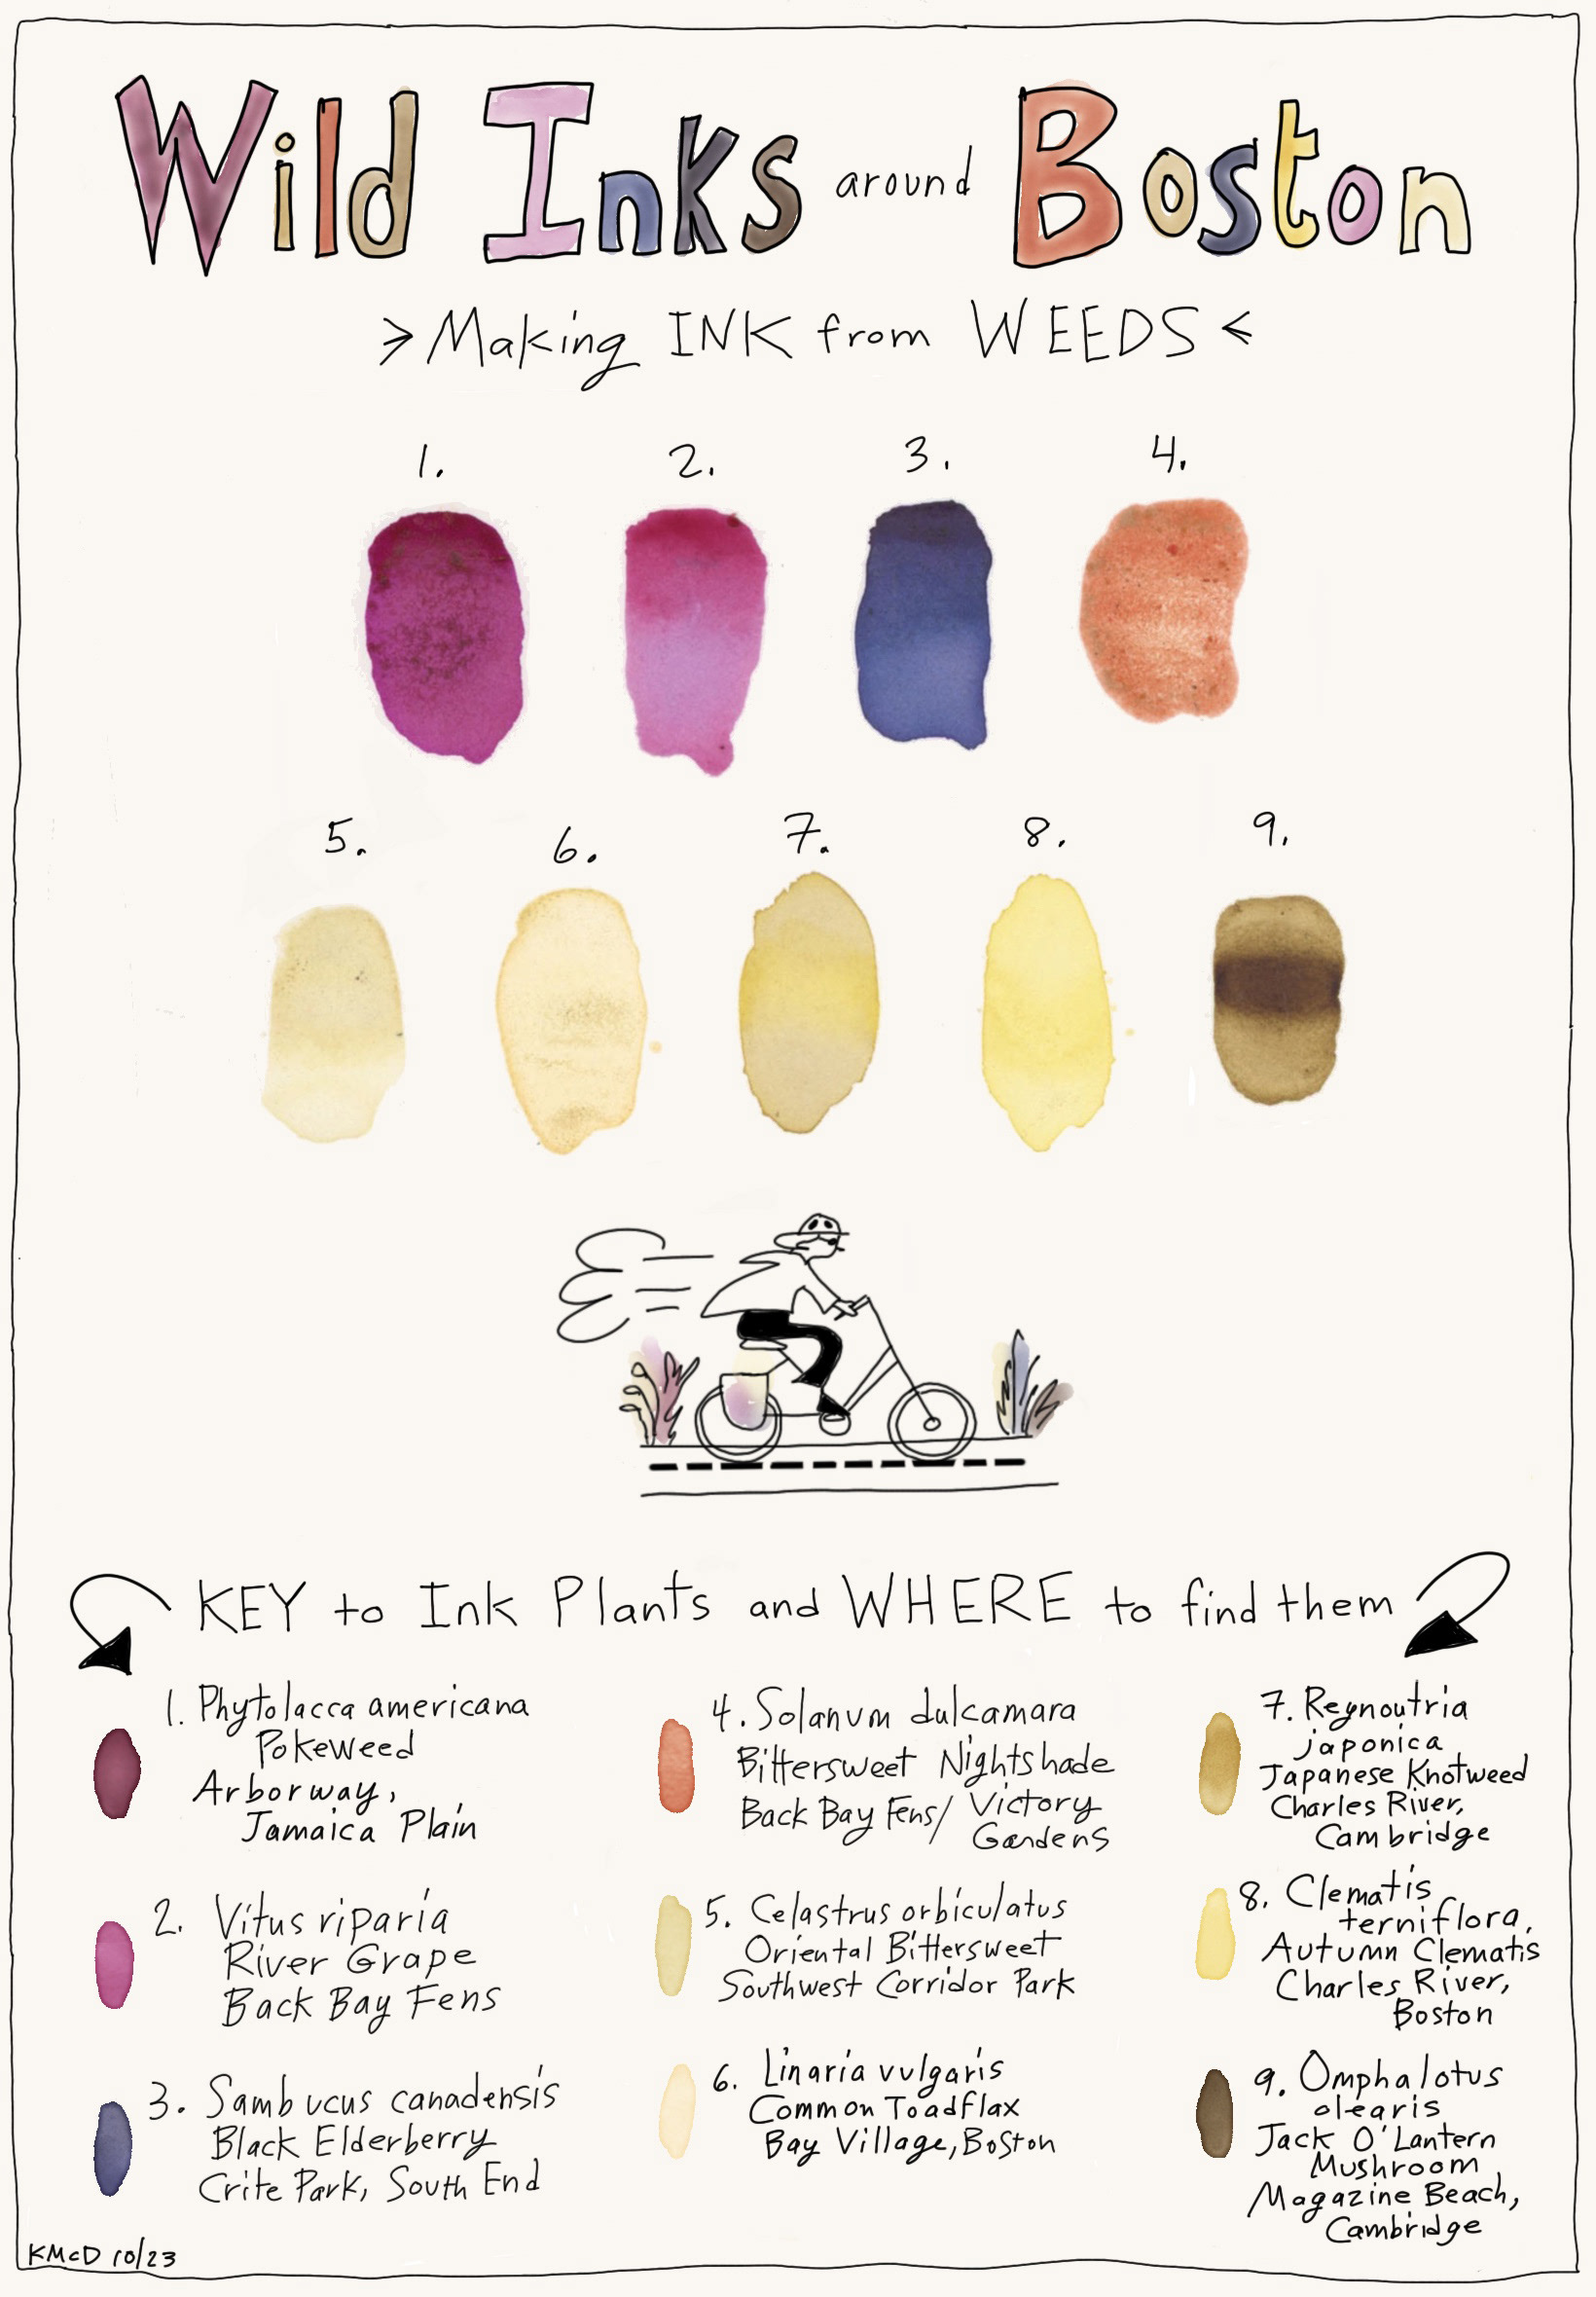 Wild Inks around Boston
>Making INK from WEEDS<
1.
2.
3.
4.
5.
6.
7.
8.
9.
KEY to Ink Plants and WHERE to find them
1. Phytolacca americana
Pokeweed
Arborway,
Jamaica Plain
2. Vitus riparia
River Grape
Back Bay Fens
3. Sambucus canadensis
Black Elderberry
Crite Park, South End
4. Solanum dulcamara
Bittersweet Nightshade
Back Bay Fens/ Victory
Gardens
5. Celastrus orbiculatus
Oriental Bittersweet
Southwest Corridor Park
6. Linaria vulgaris
Common Toadflax
Bay Village, Boston
7. Reynoutria
japonica
Japanese Knotweed
Charles River,
Cambridge
8. Clematis
terniflora,
Autumn Clematis
Charles River,
Boston
9. Omphalotus
olearis
Jack O'Lantern
Mushroom
Magazine Beach,
Cambridge
KMcD 10/23